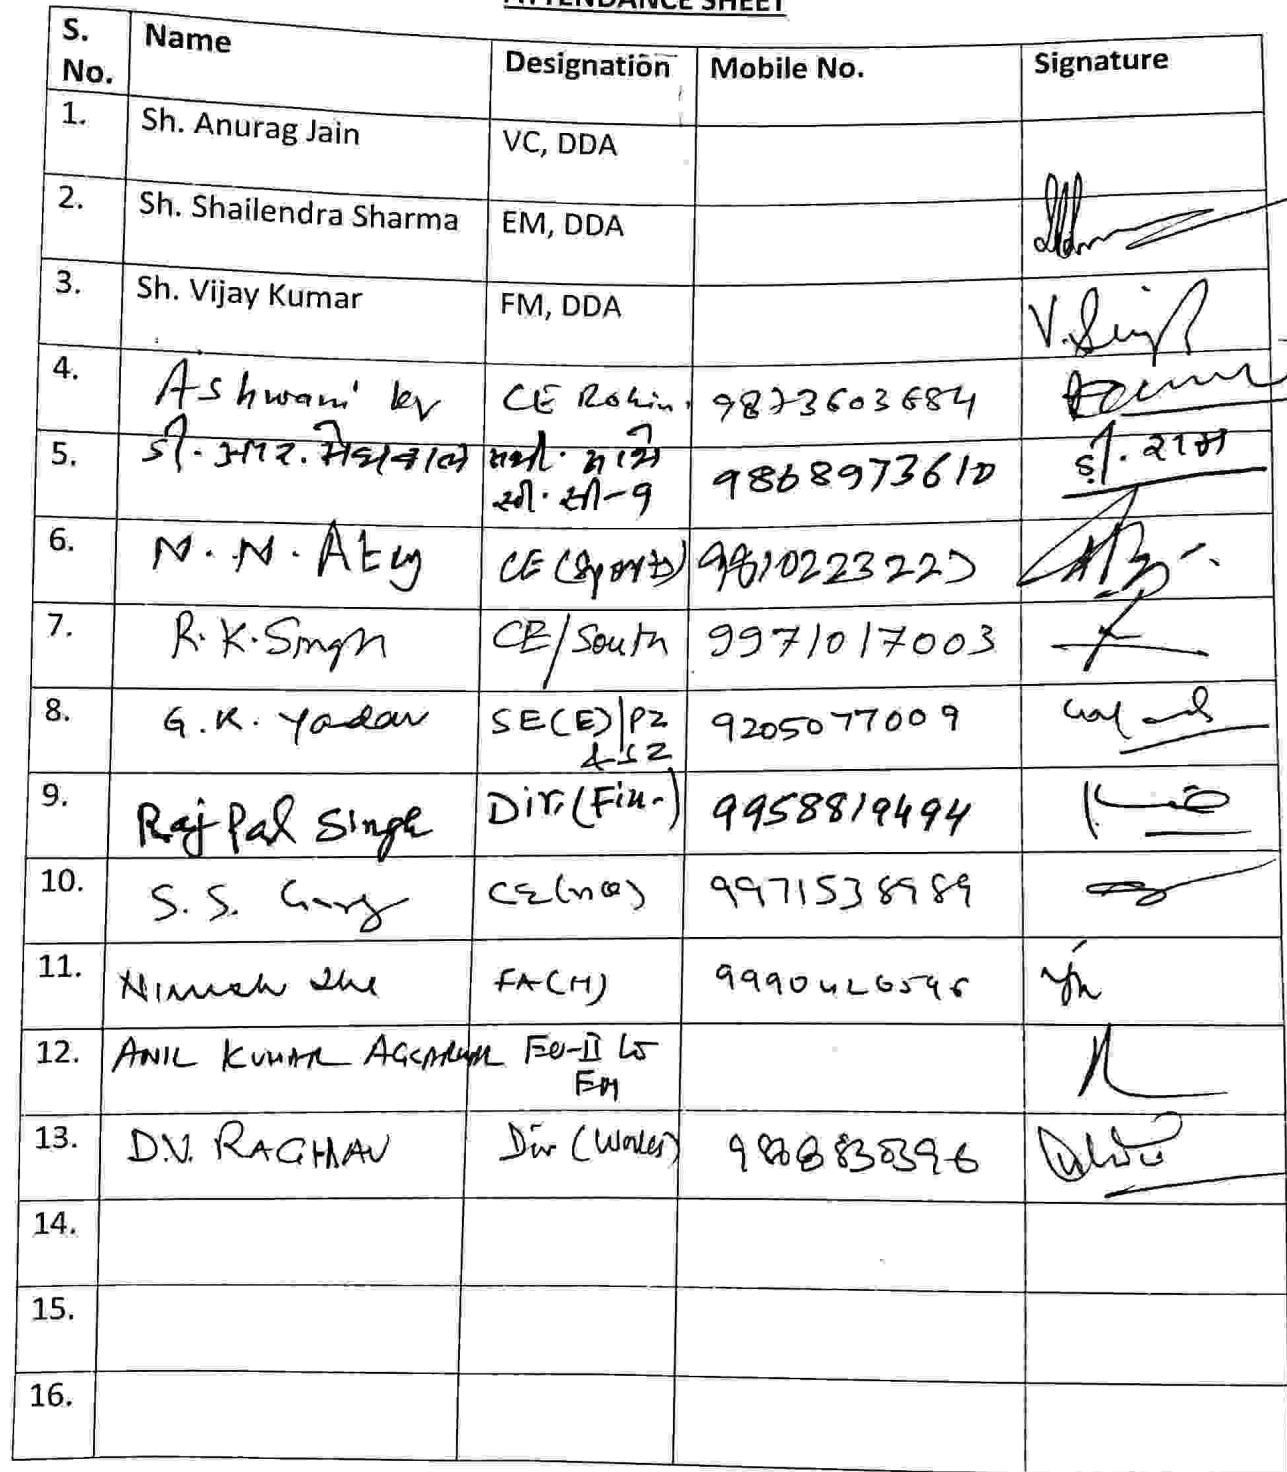 ATTENDANCE SHEET
S. No. Name Designation Mobile No. Signature
1. Sh. Anurag Jain VC, DDA
2. Sh. Shailendra Sharma EM, DDA
3. Sh. Vijay Kumar FM, DDA V. Singh
4. Ashwani kr CE Rohini 9873603684
5. डी. आर. मेघवाल 9868973610 डी. राम
सी. सी-१
6. N. N. CE (Sports) 9810223225
7. R. K. Singh CE/South 9971017003
8. G. K. Yadav SE(E)|PZ 9205077009
& SZ
9. Raj Pal Singh Dir. (Fin.) 9958819494
10. S. S. Garg CE 9971538989
11. FA(H)
12. ANIL KUMAR AGGARWAL EO-II to
EM
13. D.V. RAGHAV Dir (Works)
14.
15.
16.